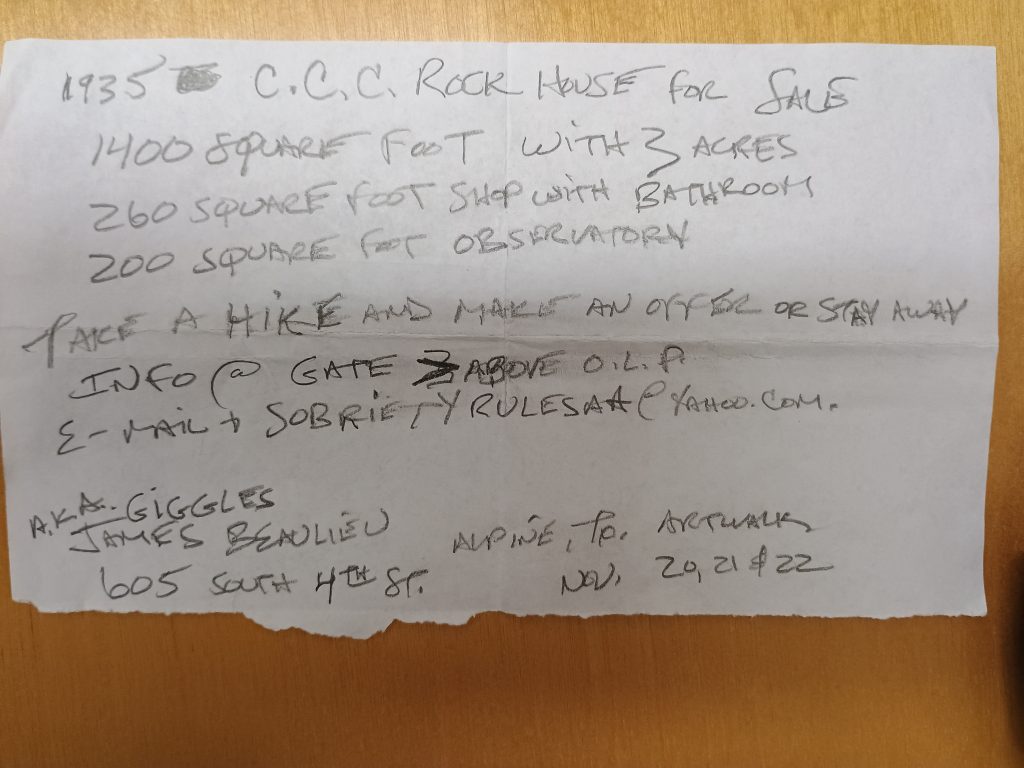 1935 C.C.C. ROCK HOUSE FOR SALE
1400 SQUARE FOOT WITH 3 ACRES
260 SQUARE FOOT SHOP WITH BATHROOM
200 SQUARE FOOT OBSERVATORY
TAKE A HIKE AND MAKE AN OFFER OR STAY AWAY
INFO @ GATE ABOVE O.L.P.
E-MAIL → SOBRIETYRULESAA@YAHOO.COM.
A.K.A. GIGGLES
JAMES BEAULIEU
ALPINE, TX. ARTWALK
605 SOUTH 4TH ST.
NOV. 20, 21 & 22